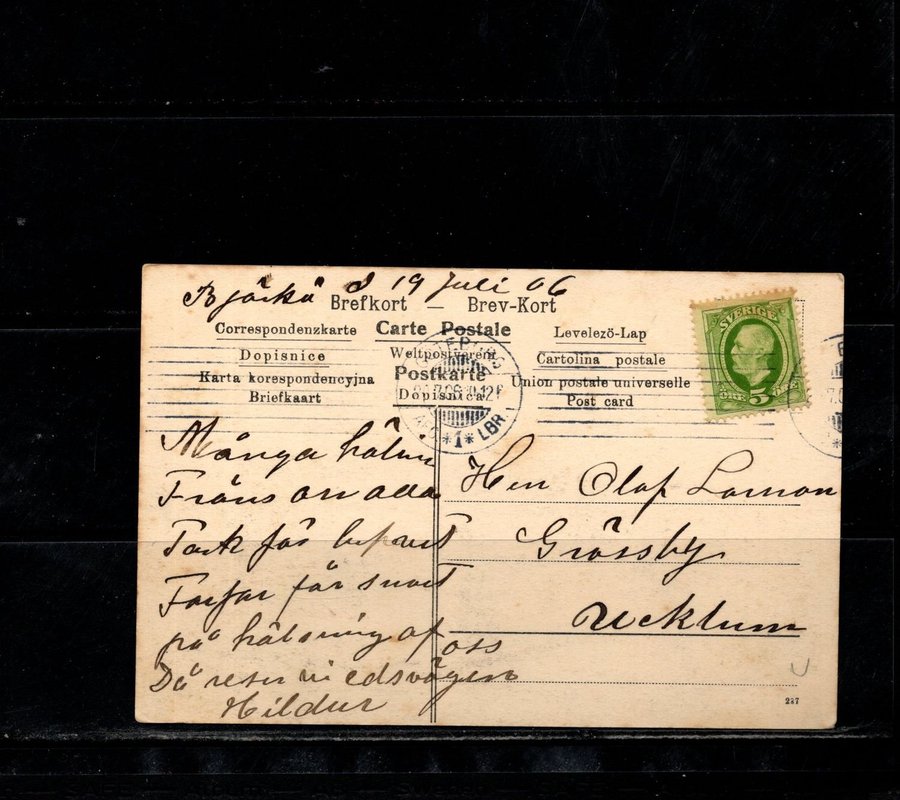 Björkö d 19 Juli 06
Brefkort — Brev-Kort
Correspondenzkarte Carte Postale Levelezö-Lap
Dopisnice Weltpostverein Cartolina postale
Karta korespondencyjna Postkarte Union postale universelle
Briefkaart Dopisnica Post card
SVERIGE
5
ÖRE
*1* LBR.
Många
Tack för
Farfar för snart
på hälsning af oss
Då reser vi edsvägen
Hildur
Herr Olof Larson
Grössby
Ucklum
237